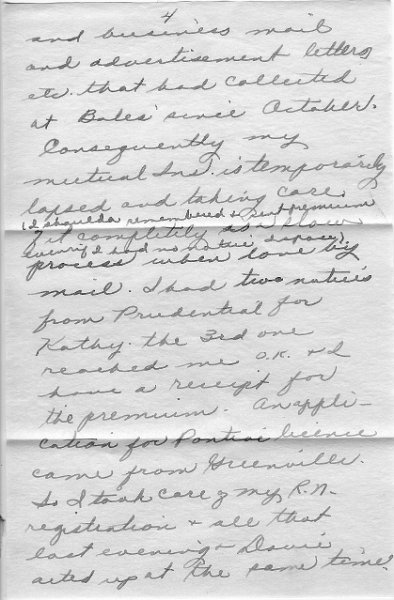 4
and business mail
and advertisement letters
etc. that had collected
at Bales' since October.
Consequently my
mutual Ins. is temporarily
lapsed and taking care
(I should a remembered & sent premium
of it completely is a slow
even if I had no notice, I spose)
process when done by
mail. I had two notices
from Prudential for
Kathy. the 3rd one
reached me O.K. & I
have a receipt for
the premium. An appli-
cation for Pontiac licence
came from Greenville.
So I took care of my R.N.
registration & all that
last evening & Davie
acted up at the same time.